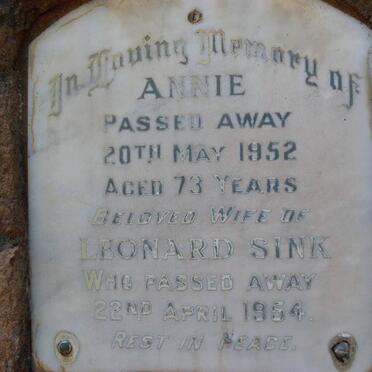 In Loving Memory of
ANNIE
PASSED AWAY
20TH MAY 1952
AGED 73 YEARS
BELOVED WIFE OF
LEONARD SINK
WHO PASSED AWAY
22ND APRIL 1954.
REST IN PEACE.